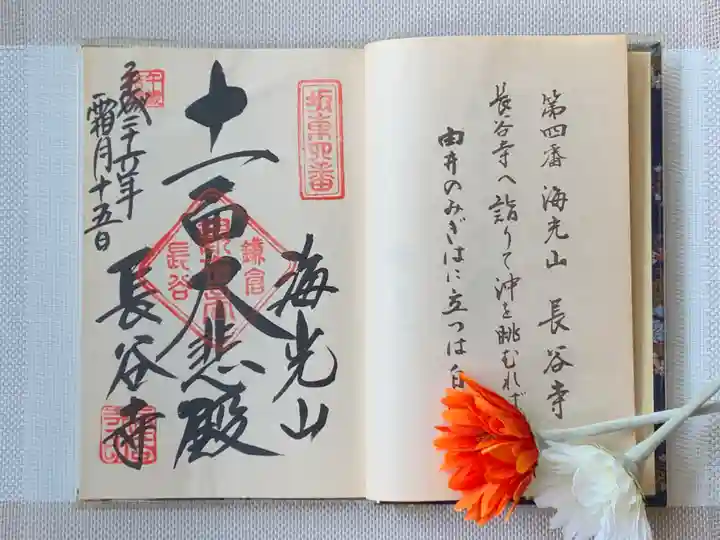 第四番 海光山 長谷寺
長谷寺へ詣りて沖を眺むれば
由井のみぎはに立つは白
坂東四番
海光山
十一面大悲殿
鎌倉
長谷
長谷寺
平成二十六年
霜月十五日